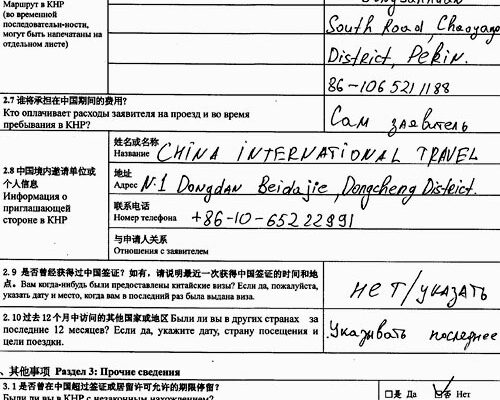 Маршрут в КНР
(во временной
последовательн-ности,
могут быть напечатаны на
отдельном листе)
South Road, Chaoyang
District, Pekin.
86-106 521 1188
2.7 谁将承担在中国期间的费用?
Кто оплачивает расходы заявителя на проезд и во время
пребывания в КНР?
Сам заявитель
2.8 中国境内邀请单位或
个人信息
Информация о
приглашающей
стороне в КНР
姓名或名称
Название CHINA INTERNATIONAL TRAVEL
地址
Адрес N.1 Dongdan Beidajie, Dongcheng District.
联系电话
Номер телефона +86-10-65222991
与申请人关系
Отношения с заявителем
2.9 是否曾经获得过中国签证? 如有, 请说明最近一次获得中国签证的时间和地
点。Вам когда-нибудь были предоставлены китайские визы? Если да, пожалуйста,
указать дату и место, когда вам в последний раз была выдана виза.
нет/указать
2.10 过去 12 个月中访问的其他国家或地区 Были ли вы в других странах за
последние 12 месяцев? Если да, укажите дату, страну посещения и
цели поездки.
Указывать последнее
、其他事项 Раздел 3: Прочие сведения
3.1 是否曾在中国超过签证或居留许可允许的期限停留?
Были ли вы в КНР с незаконным нахождением?
是 Да
否 Нет